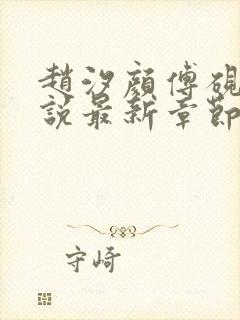 趙汐顏傅硯
說最新章節
守崎